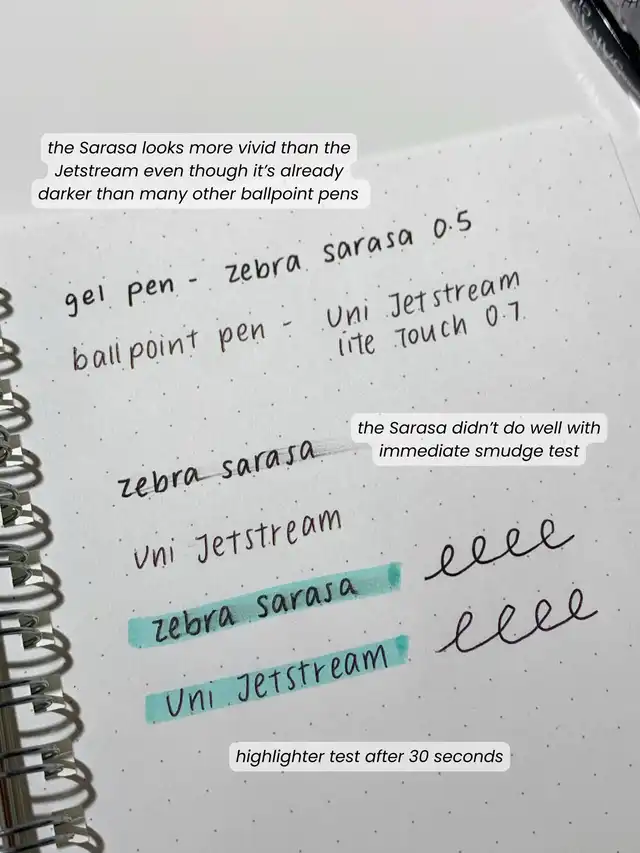 the Sarasa looks more vivid than the
Jetstream even though it's already
darker than many other ballpoint pens
gel pen - zebra sarasa 0.5
ballpoint pen - Uni Jetstream
lite Touch 0.7
the Sarasa didn't do well with
immediate smudge test
zebra sarasa
Uni Jetstream
zebra sarasa
eeee
Uni Jetstream
eeee
highlighter test after 30 seconds